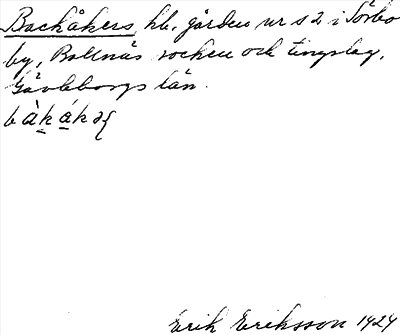 Backåkers, hb. gården nr s 2 i Sörbo
by, Bollnäs socken och tingslag,
Gävleborgs län.
Erik Eriksson 1924